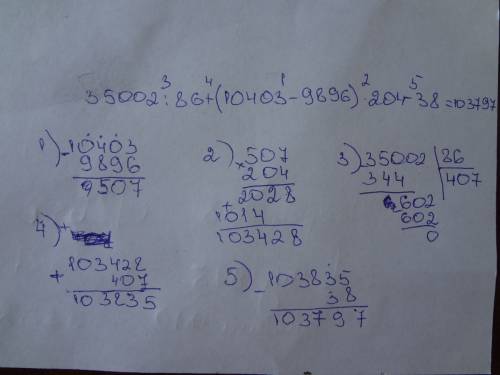 3 4 1 2 5
35002:86+(10403-9896)·204-38=103797
1) -10403
9896
9507
2) ×507
204
2028
+1014
103428
3) 35002 | 86
344 | 407
602
602
0
4) +
+103428
407
103835
5) -103835
38
103797